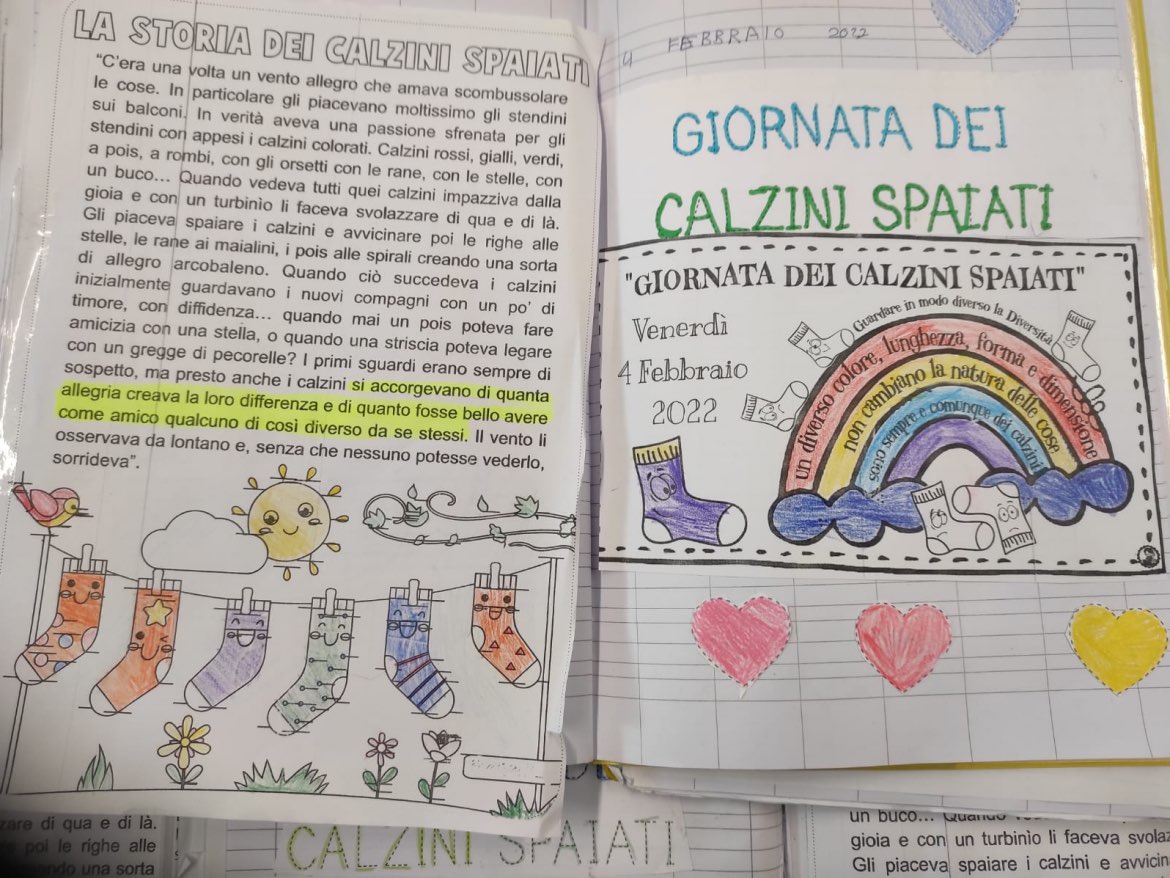 LA STORIA DEI CALZINI SPAIATI
“C’era una volta un vento allegro che amava scombussolare
le cose. In particolare gli piacevano moltissimo gli stendini
sui balconi. In verità aveva una passione sfrenata per gli
stendini con appesi i calzini colorati. Calzini rossi, gialli, verdi,
a pois, a rombi, con gli orsetti con le rane, con le stelle, con
un buco… Quando vedeva tutti quei calzini impazziva dalla
gioia e con un turbinìo li faceva svolazzare di qua e di là.
Gli piaceva spaiare i calzini e avvicinare poi le righe alle
stelle, le rane ai maialini, i pois alle spirali creando una sorta
di allegro arcobaleno. Quando ciò succedeva i calzini
inizialmente guardavano i nuovi compagni con un po’ di
timore, con diffidenza… quando mai un pois poteva fare
amicizia con una stella, o quando una striscia poteva legare
con un gregge di pecorelle? I primi sguardi erano sempre di
sospetto, ma presto anche i calzini si accorgevano di quanta
allegria creava la loro differenza e di quanto fosse bello avere
come amico qualcuno di così diverso da se stessi. Il vento li
osservava da lontano e, senza che nessuno potesse vederlo,
sorrideva”.
4 FEBBRAIO 2022
GIORNATA DEI
CALZINI SPAIATI
"GIORNATA DEI CALZINI SPAIATI"
Venerdì
4 Febbraio
2022
Guardare in modo diverso la Diversità
un diverso colore, lunghezza, forma e dimensione
non cambiano la natura delle cose
sono sempre e comunque dei calzini
zare di qua e di là.
poi le righe alle
ando una sorta
CALZINI SPAIATI
un buco…
gioia e con un turbinìo li faceva svolaz
Gli piaceva spaiare i calzini e avvicin